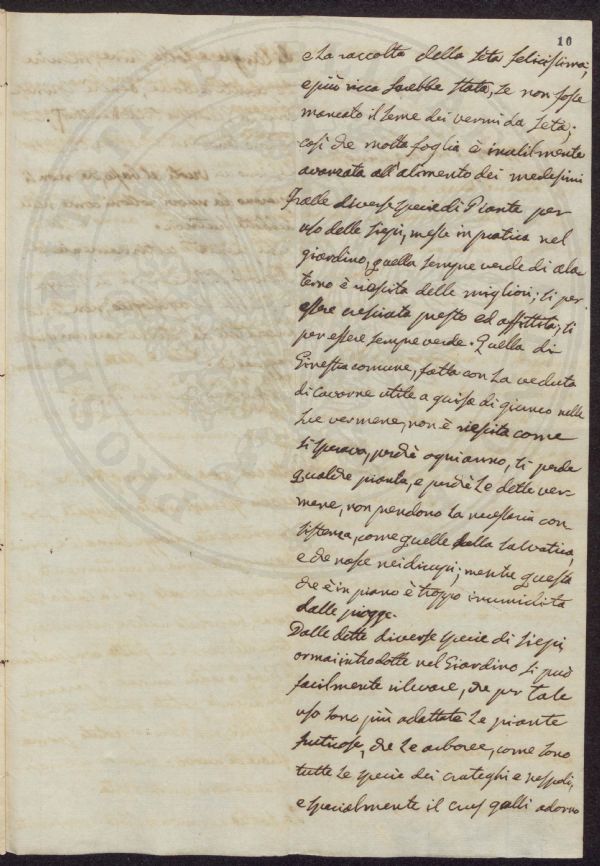 10
e La raccolta della seta felicissima,
e più ricca sarebbe stata, se non fosse
mancato il seme dei vermi da seta;
così che molta foglia è inutilmente
avanzata all'alimento dei medesimi
Fralle diverse specie di Piante per
uso delle siepi, messe in pratica nel
giardino, quella sempre verde di ala
terno è riescita delle migliori; si per
essere cresciuta presto ed affittita, si
per essere sempre verde. Quella di
Ginestra comune, fatta con la veduta
di cavarne utile a guisa di giunco nelle
sue vermene, non è riescita come
si sperava, perchè ogni anno, si perde
qualche pianta, e perchè le dette ver-
mene, non prendono la necessaria con
sistenza, come quelle della salvatica,
e che nasce nei dirupi; mentre questa
che è in piano è troppo inumidita
dalle piogge.
Dalle dette diverse specie di siepi
ormai introdotte nel Giardino si può
facilmente rilevare, che per tale
uso sono più adattate le piante
fruticose, che le arboree, come sono
tutte le specie dei crateghi e nespoli,
e specialmente il crus galli adorno